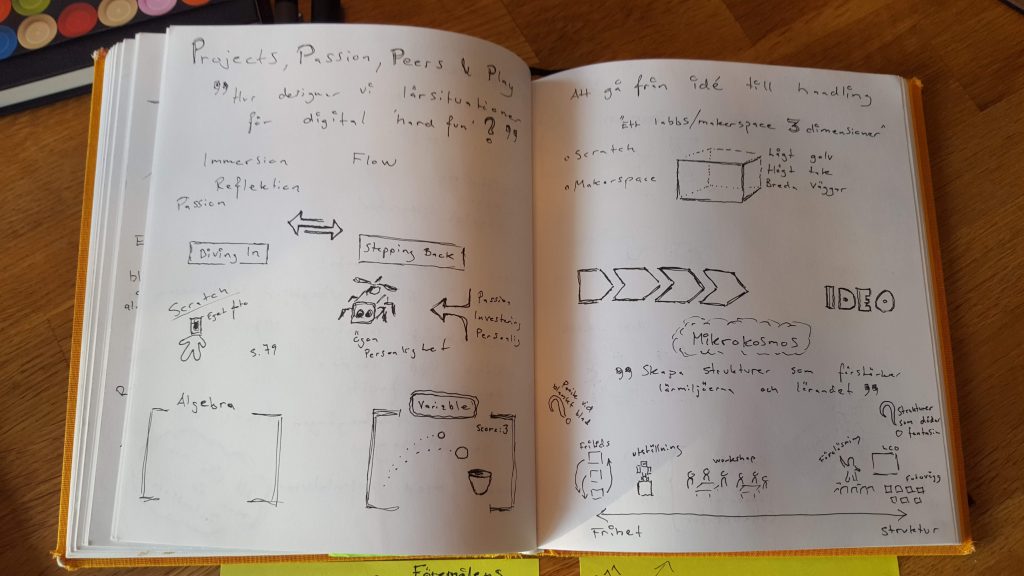 Projects, Passion, Peers & Play
"Hur designar vi lärsituationer
för digital 'hard fun' ? "
Immersion Flow
Reflektion
Passion
Diving In
Stepping Back
Scratch
Eget foto
s.79
Ögon
Personlighet
Passion
Investering
Personlig
Algebra
Variable
Score: 3
Att gå från idé till handling
"Ett labbs/makerspace 3 dimensioner"
Scratch
Makerspace
Lågt golv
Högt tak
Breda väggar
IDEO
Mikrokosmos
"Skapa strukturer som förstärker
lärmiljöerna och lärandet"
Panik vid
blankt blad
?
Strukturer
som dödar
fantasin
?
utställning
workshop
Föreläsning
Frihet
Struktur
Föremålens